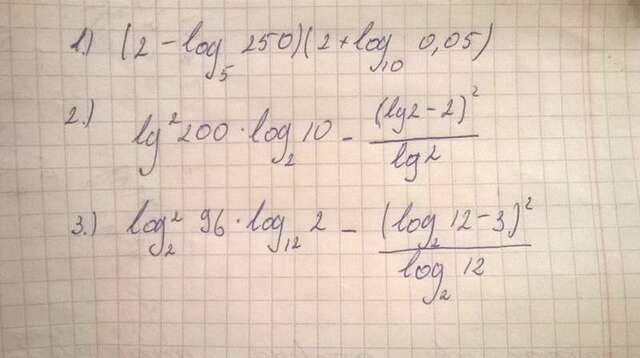 1.) (2 - log₅ 250)(2 + log₁₀ 0,05)
2.) lg² 200 · log₂ 10 - (lg 2 - 2)² / lg 2
3.) log₂² 96 · log₁₂ 2 - (log₂ 12 - 3)² / log₂ 12